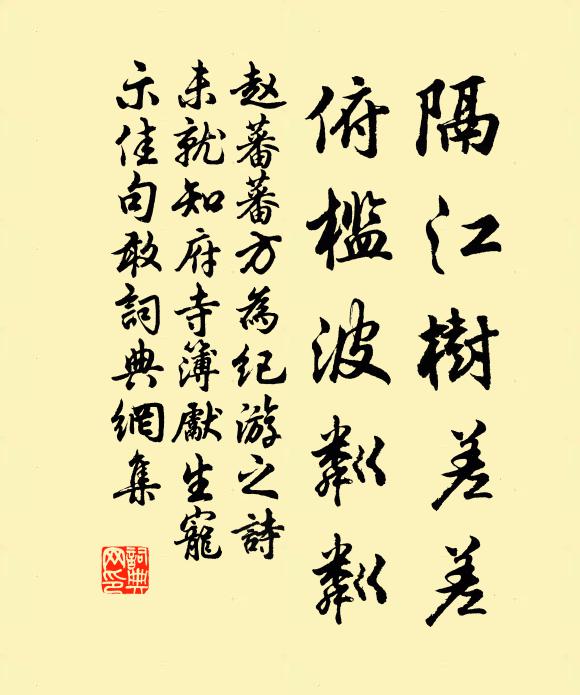 隔江樹差差
俯檻波粼粼
赵蕃蕃方為紀游之詩
未就知府寺簿獻生寵
示佳句敢詞典網集
詞典网印